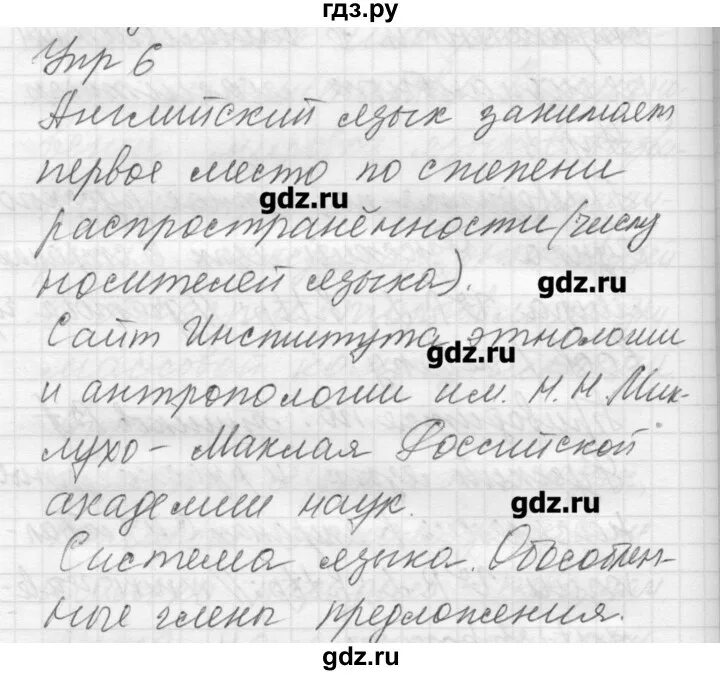 гдз.ру
Упр 6
Английский язык занимает
первое место по степени
gdz.ru
распространённости (числу
носителей языка).
gdz.ru
Сайт Института этнологии
gdz.ru
и антропологии им. Н. Н. Мик-
лухо-Маклая Российской
академии наук.
gdz.ru
Система языка.
ные члены предложения.
gdz.ru